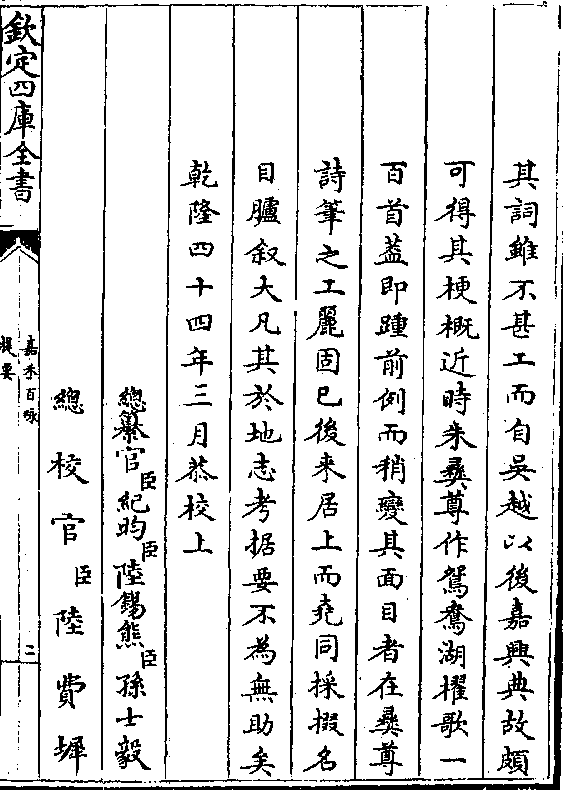 其詞雖不甚工而自吳越以後嘉興典故頗
可得其梗概近時朱彝尊作鴛鴦湖櫂歌一
百首蓋即踵前例而稍變其面目者在彝尊
詩筆之工麗固已後來居上而堯同採掇名
目臚叙大凡其於地志考據要不為無助矣
乾隆四十四年三月恭校上
總纂官臣紀昀臣陸錫熊臣孫士毅
總校官臣陸費墀
欽定四庫全書
嘉禾百咏
提要
二